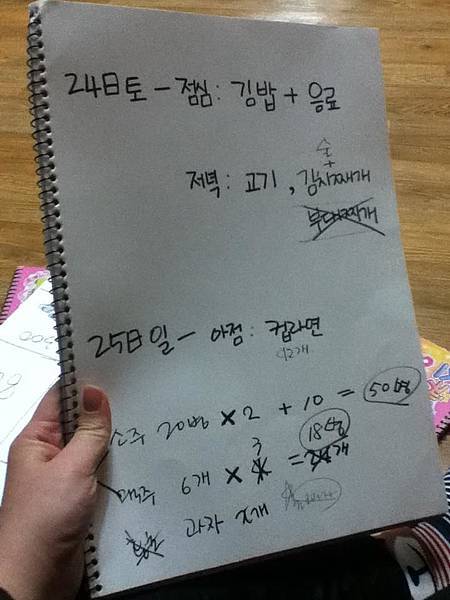 24日토 - 점심: 김밥 + 음료
술
+
저녁: 고기, 김치찌개
부대찌개
25日일 - 아점: 컵라면
12개
소주 20병 × 2 + 10 = 50병
3 18병
맥주 6개 × 4 = 24개
과자 x개